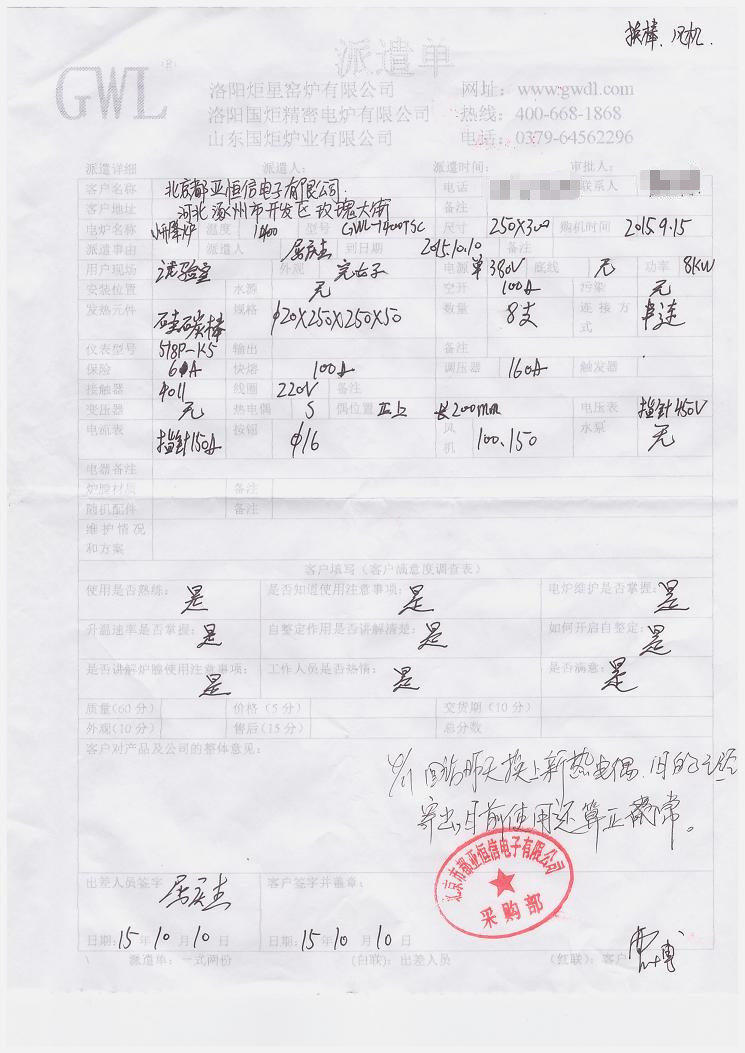 换棒、风机.
派遣单
GWL®
洛阳炬星窑炉有限公司 网址：www.gwdl.com
洛阳国炬精密电炉有限公司 热线：400-668-1868
山东国炬炉业有限公司 电话：0379-64562296
派遣详细 派遣人： 派遣时间： 审批人：
客户名称 北京都亚恒信电子有限公司. 电话 联系人
客户地址 河北涿州市开发区玫瑰大街 备注
电炉名称 升降炉 温度 1400 型号 GWL-1400TSC 尺寸 250X300 购机时间 2015.9.15
派遣事由 派遣人 到日期 2015.10.10 备注
用户现场 试验室 外观 完好 电源 单380V 底线 无 功率 8KW
安装位置 水源 无 空开 100A 污染 无
发热元件 硅碳棒 规格 φ20X250X250X50 数量 8支 连接方式 串连
仪表型号 518P-K5 输出 备注
保险 6A 快熔 100A 调压器 160A 触发器
接触器 4011 线圈 220V 备注
变压器 无 热电偶 S 偶位置 正上 长200mm 电压表 指针450V
电流表 指针150A 按钮 φ16 风机 100.150 水泵 无
电器备注
炉膛材质 备注
随机配件 备注
维护情况和方案
客户填写（客户成意度调查表）
使用是否熟练： 是 是否知道使用注意事项： 是 电炉维护是否掌握： 是
升温速率是否掌握： 是 自整定作用是否讲解清楚： 是 如何开启自整定： 是
是否讲解炉膛使用注意事项： 是 工作人员是否热情： 是 是否满意： 是
质量(60分) 价格(5分) 交货期(10分)
外观(10分) 售后(15分) 总分数
客户对产品及公司的整体意见：
昨天换上新热电偶、旧的已经
寄出，目前使用还算正常。
北京市都亚恒信电子有限公司
采购部
出差人员签字 客户签字并盖章：
日期：15年10月10日 日期：15年10月10日
派遣单：一式两份 (白联)：出差人员 (红联)：客户